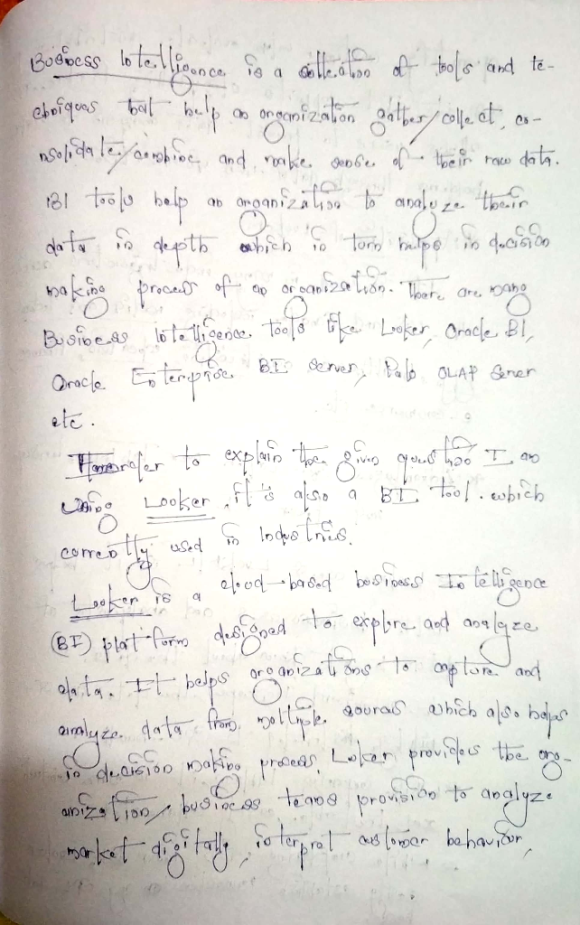 Business Intelligence is a collection of tools and te-
chniques that help an organization gather/collect, co-
nsolidate/combine, and make sense of their raw data.
BI tools help an organization to analyze their
data in depth which in turn helps in decision
making process of an organization. There are many
Business Intelligence tools like Looker, Oracle BI,
Oracle Enterprise BI Server, Palo OLAP Server
etc.
to explain the given question I am
using Looker. It's also a BI tool. which
currently used in Industries.
Looker is a cloud-based business Intelligence
(BI) platform designed to explore and analyze
data. It helps organizations to capture and
analyze data from multiple sources which also helps
in decision making process. Looker provides the org-
anization/business teams provision to analyze
market digitally, interpret customer behavior,